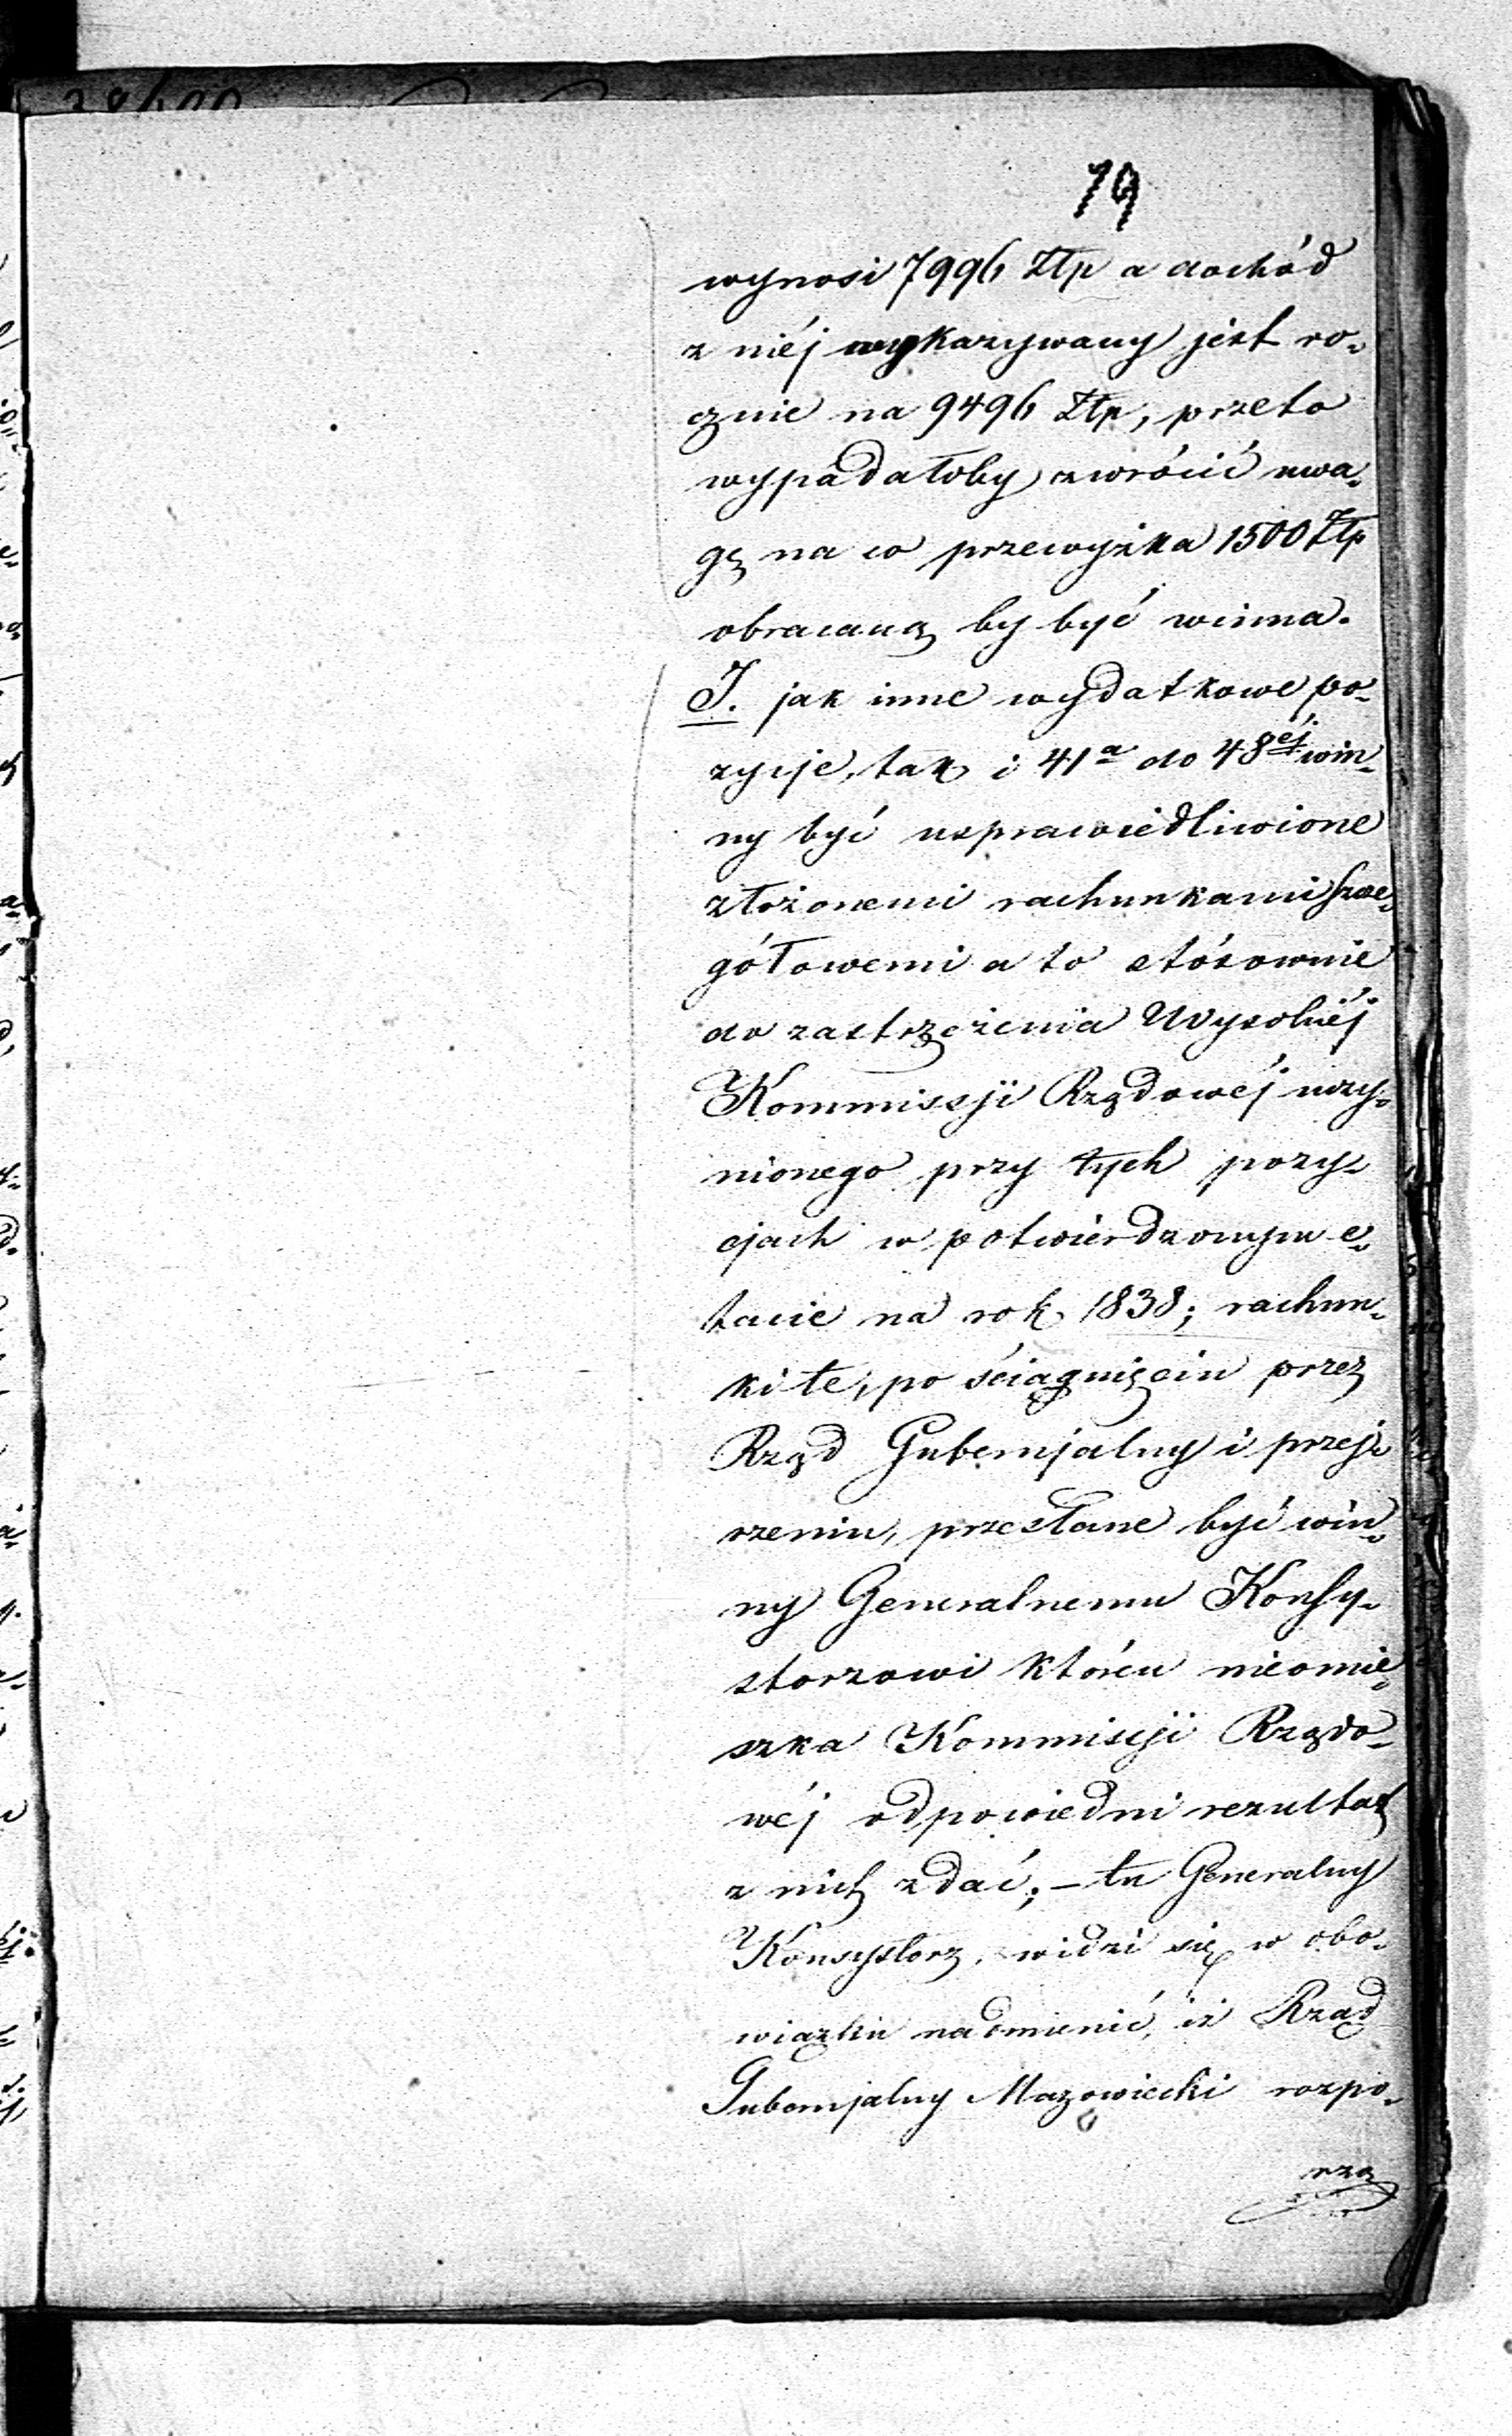 19
wynosi 7996 Złp a dochód
z niéj wykazywany jest ro-
cznie na 9496 Złp, przeto
wypadałoby zwrócić uwa-
gę na co przewyżka 1500 Złp
obracaną by być winna.
J. jak inne wydatkowe po-
zycje, tak i 41a do 48éj win-
ny być usprawiedliwione
złożonemi rachunkami szcze-
gółowemi a to stósownie
do zastrzeżenia Wysokiéj
Kommissji Rządowéj uczy-
nionego przy tych pozy-
cjach w potwierdzonym e-
tacie na rok 1838; rachun-
ki te, po ściągnięciu przez
Rząd Gubernjalny i przej-
rzeniu, przesłane być win-
ny Generalnemu Konsy-
storzowi któren nieomie-
szka Kommissji Rządo-
wéj odpowiedni rezultat
z nich zdać; – tu Generalny
Konsystorz, widzi się w obo-
wiązku nadmienić, iż Rząd
Gubernjalny Mazowiecki rozpo-
rzą